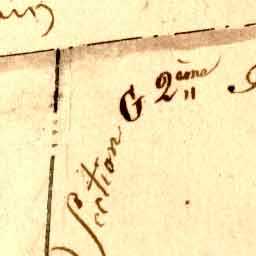 Section G 2ème